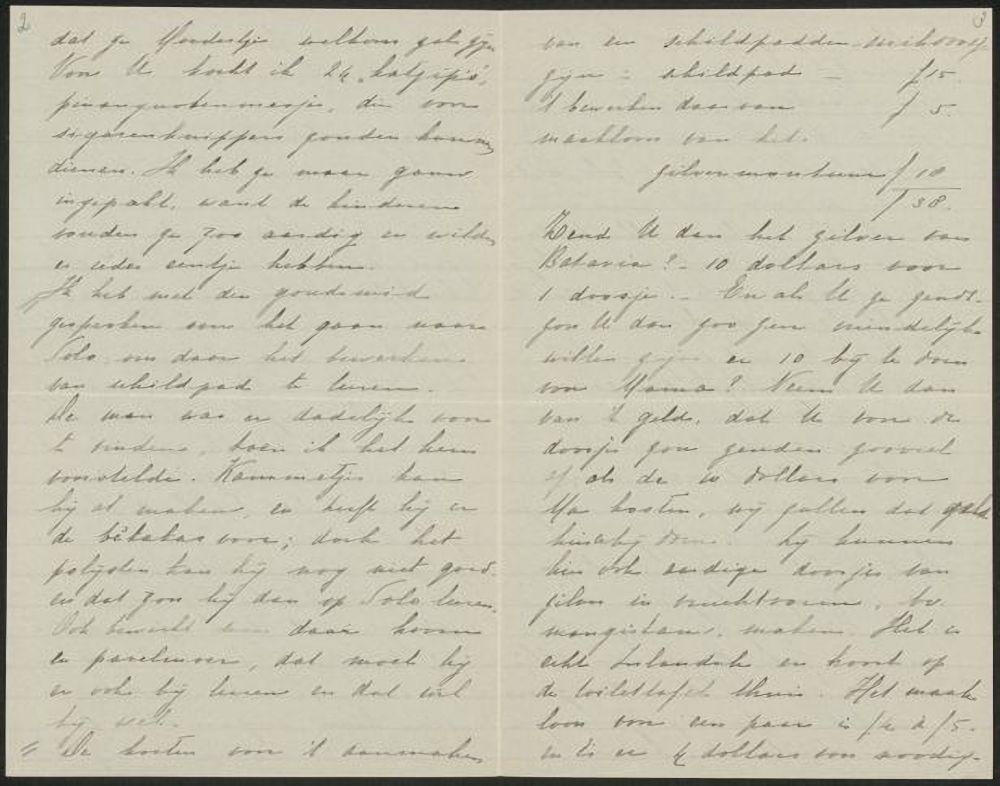 2
dat ze Moedertje welkom zal zijn
Voor U kocht ik 24 "katjip's",
pinangnotenmesje, die voor
sigarenknippers zouden kunnen
dienen. Ik heb ze maar gauw
ingepakt, want de kinderen
vonden ze zoo aardig en wilden
er ieder eentje hebben.
Ik heb met den goudsmid
gesproken over het gaan naar
Solo om daar het bewerken
van schildpad te leeren.
De man was er dadelijk voor
te vinden, toen ik het hem
voorstelde. Kammetjes kan
hij al maken, en heeft hij er
de bĕkakas voor; doch het
polijsten kan hij nog niet goed
en dat zou hij dan op Solo leeren.
Ook bewerkt men daar hoorn
en parelmoer, dat moet hij
er ook bij leeren en dat wil
hij wel.
De kosten voor 't aanmaken
3
van een schildpadden
zijn = schildpad — f 15
't bewerken daarvan f 5.
maakloon van het
zilver montuur f 18
f 38.
Zendt U dan het zilver van
Batavia? - 10 dollars voor
1 doosje. - En als U ze zendt -
zou U dan zoo zeer vriendelijk
willen zijn er 10 bij te doen
voor Mama? Neem U dan
van 't geld, dat U voor de
doosjes zou zenden zooveel
af als de 10 dollars voor
Ma kosten, wij zullen dat geld
hierbij doen. Zij kunnen
hier ook aardige doosjes van
zilver in vruchtvorm, bv.
mangistans, maken. Het is
echt Indisch en hoort op
de toilettafel thuis. Het maak
loon voor een paar is f 4 à f 5.
en er 4 dollars voor noodig.